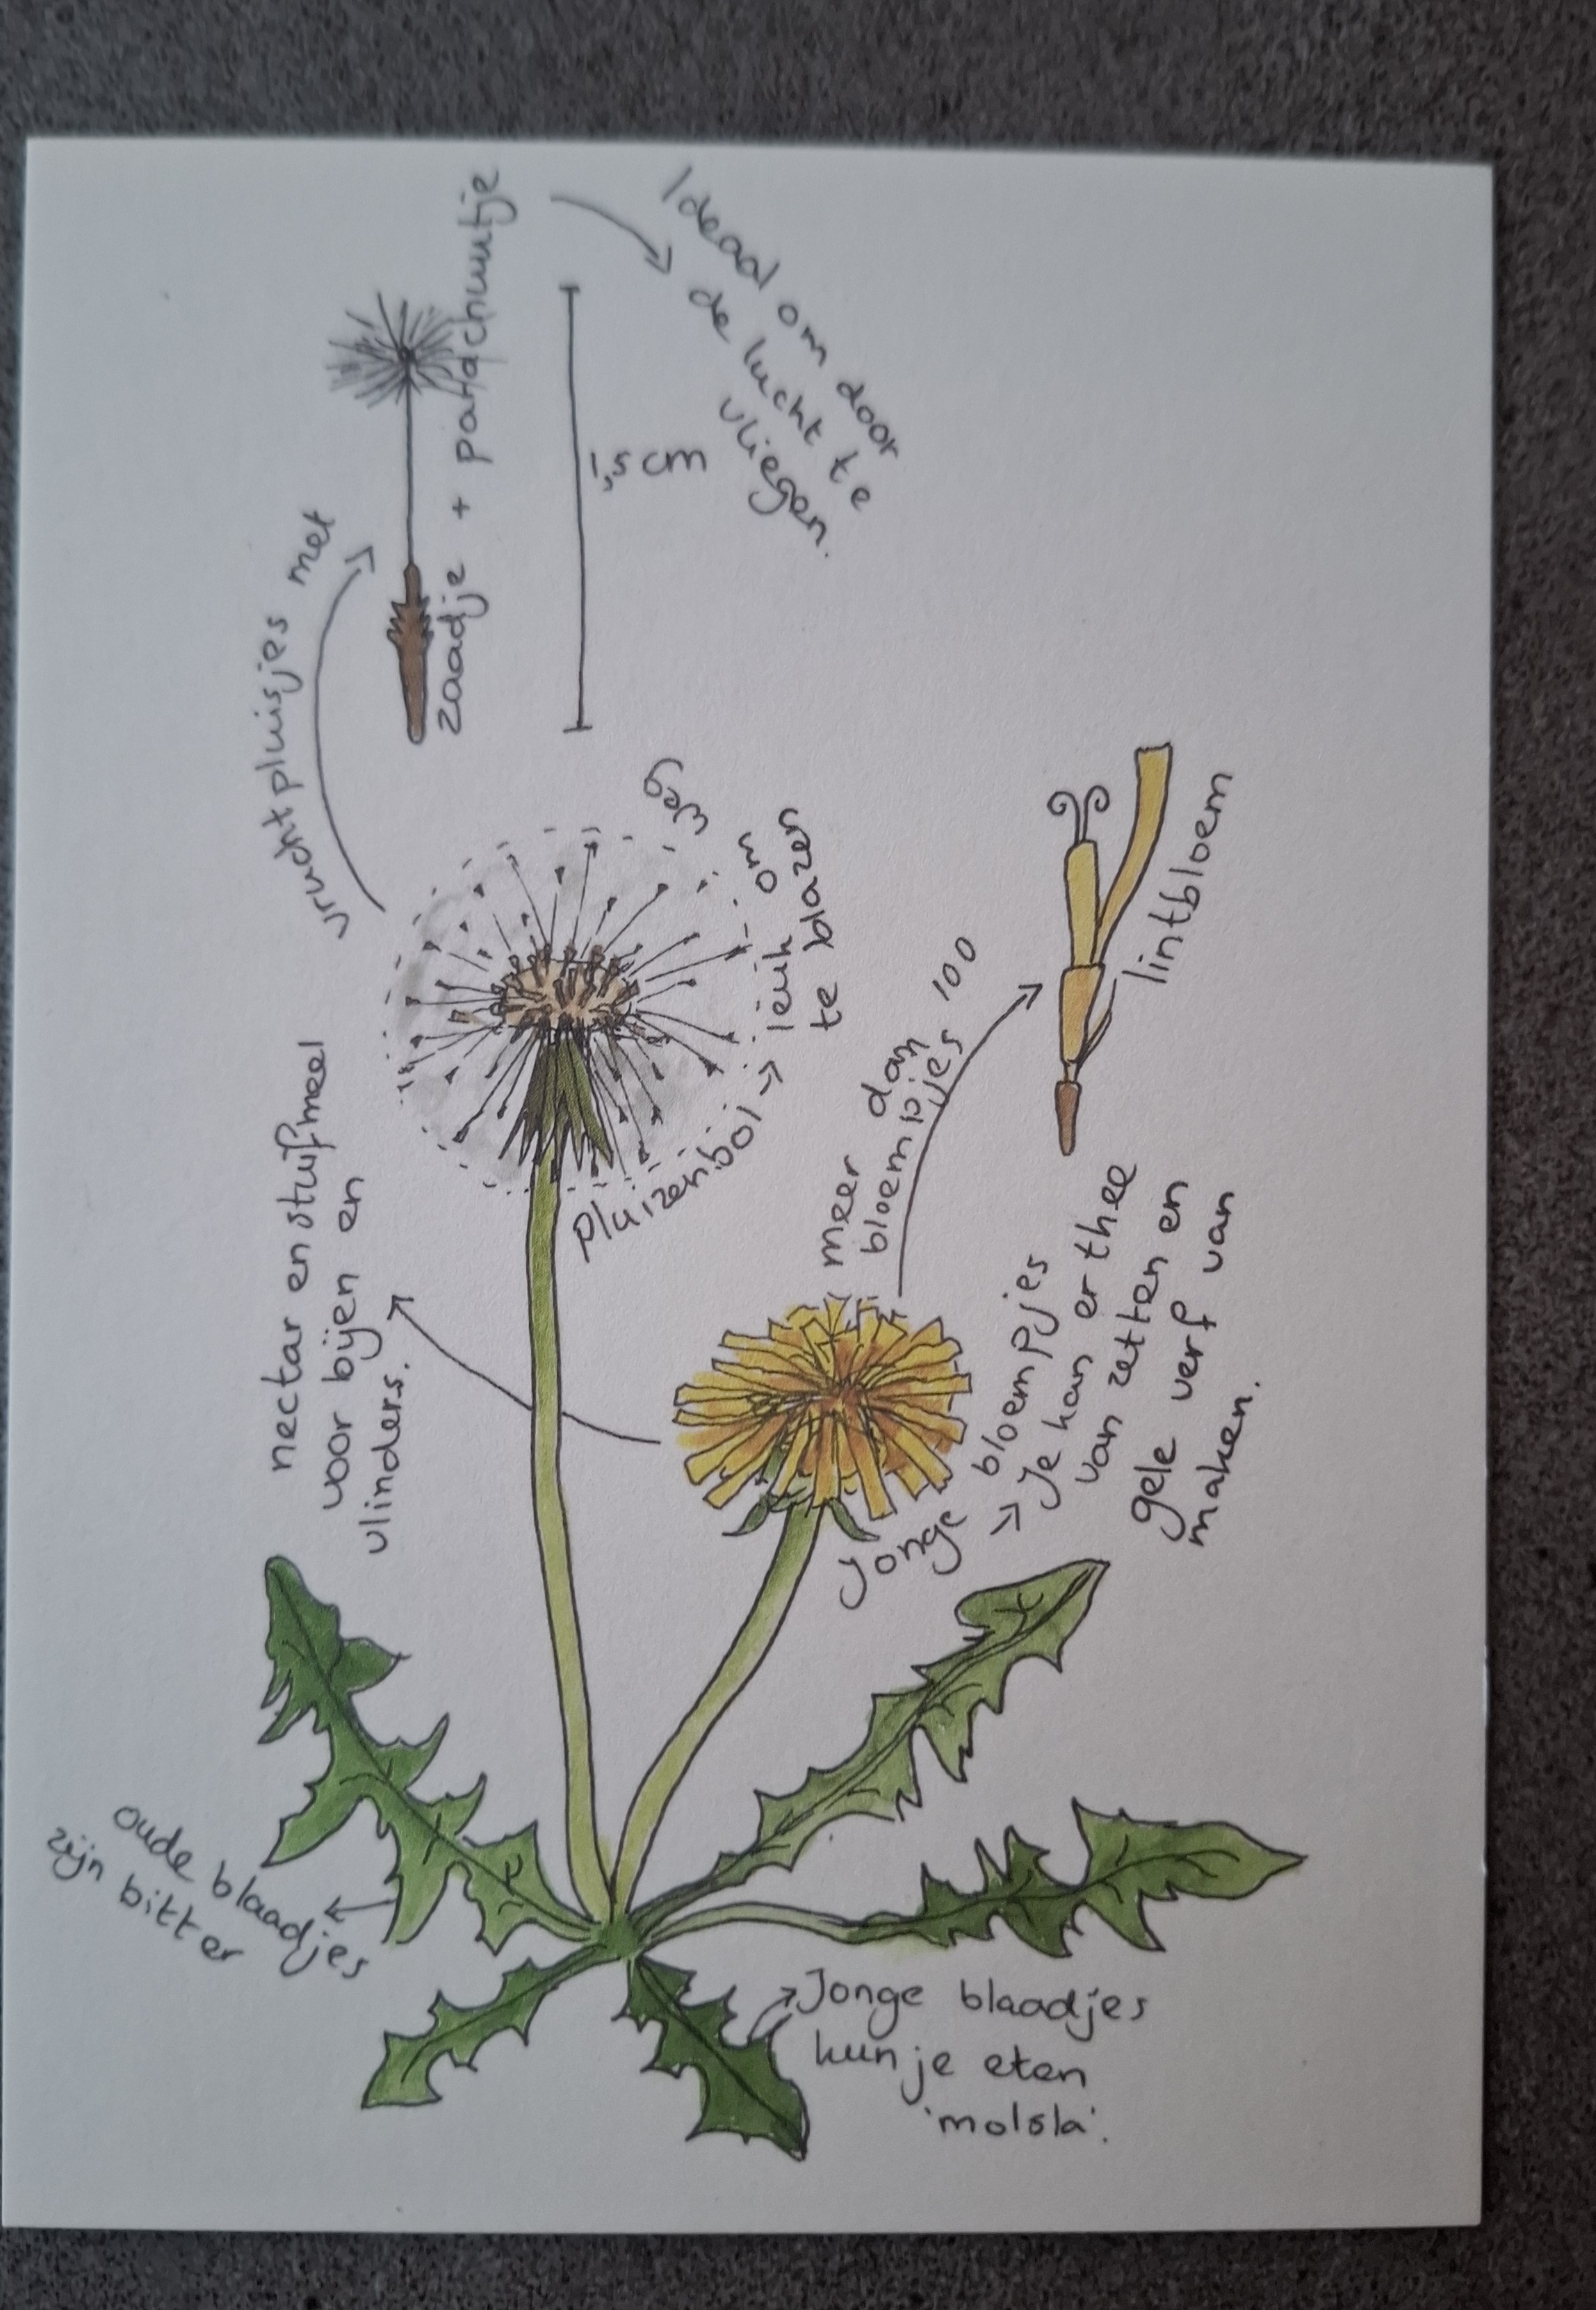 vruchtpluisjes met
zaadje + parachuutje
Ideaal om door
de lucht te
vliegen.
1,5 cm
pluizenbol → leuk om weg
te blazen
meer dan 100
bloempjes
lintbloem
nectar en stuifmeel
voor bijen en
vlinders.
Jonge bloempjes
→ Je kan er thee
van zetten en
gele verf van
maken.
oude blaadjes
zijn bitter
Jonge blaadjes
kun je eten
'molsla'.